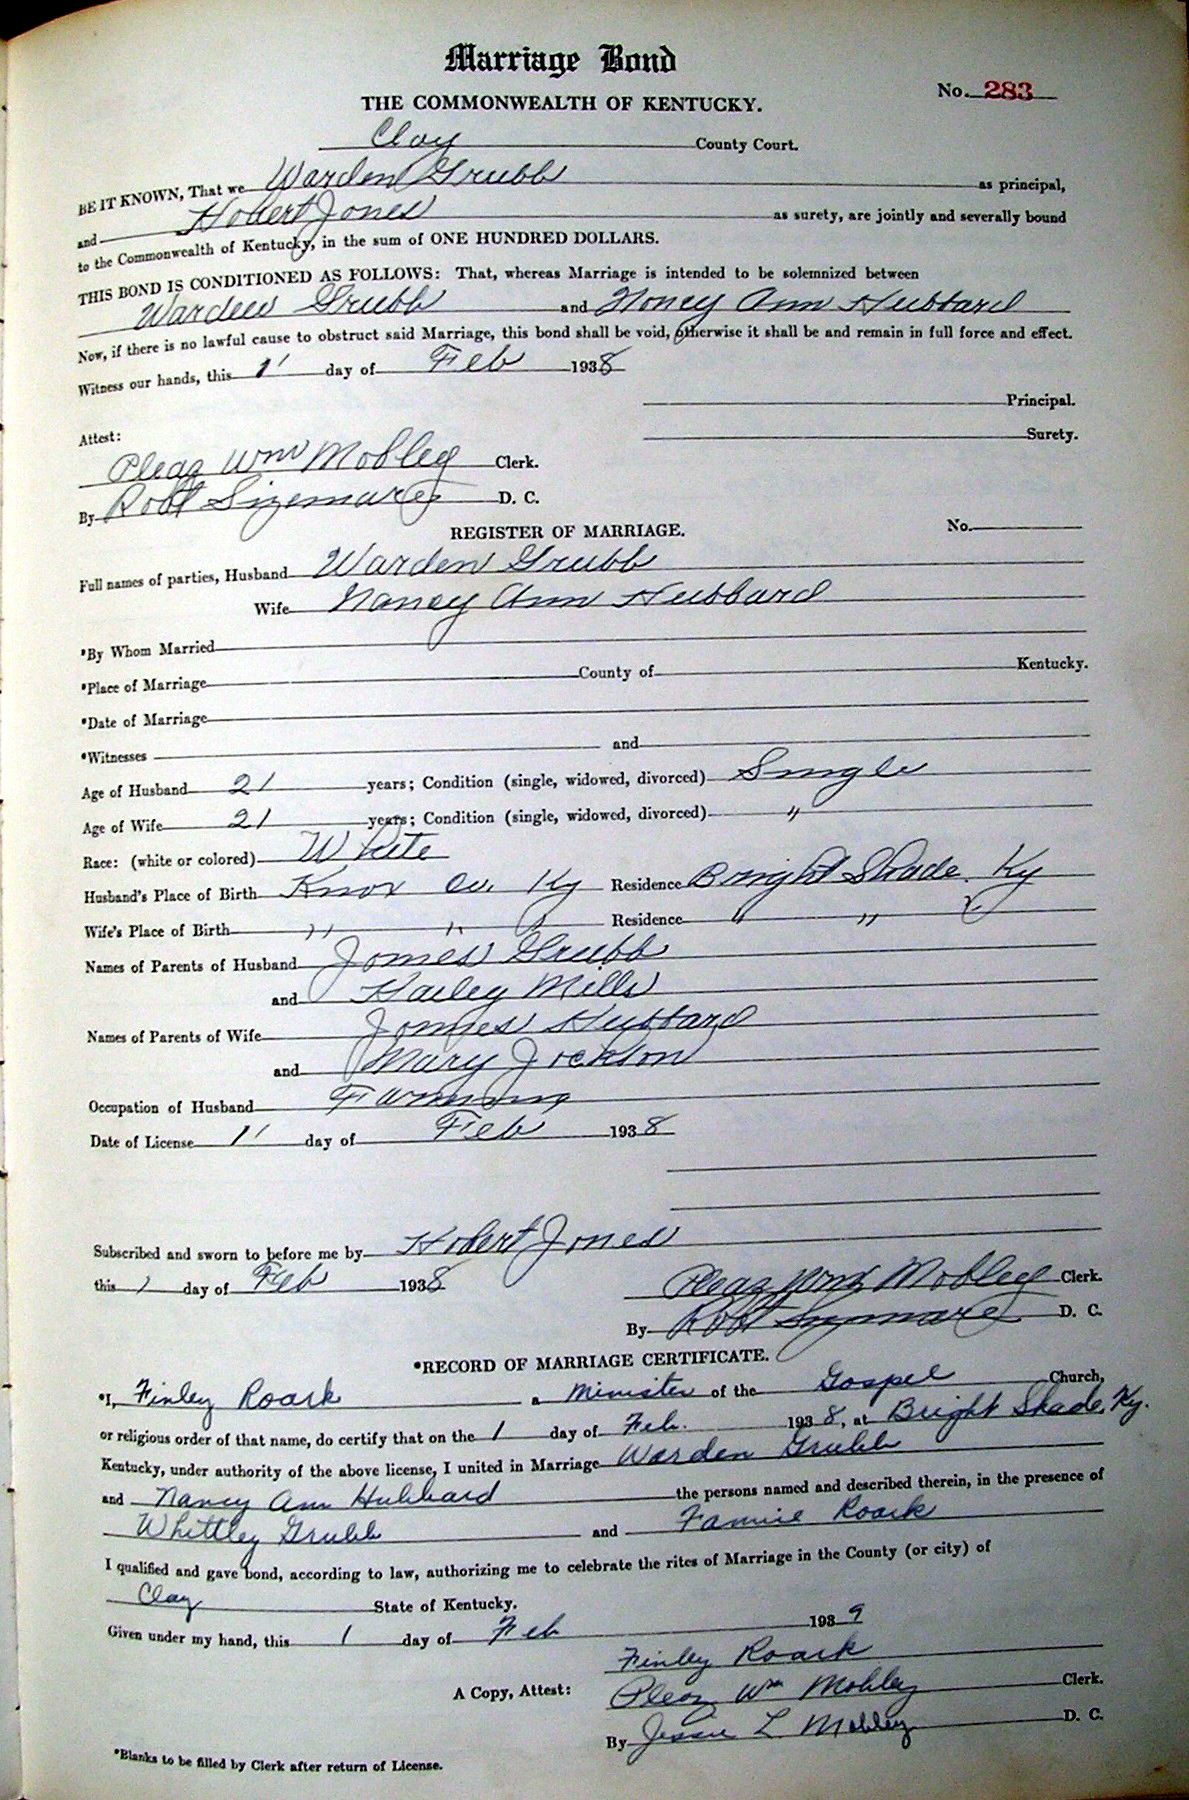 Marriage Bond
No. 283
THE COMMONWEALTH OF KENTUCKY.
Clay County Court.
BE IT KNOWN, That we Warden Grubb as principal,
and Hobert Jones as surety, are jointly and severally bound
to the Commonwealth of Kentucky, in the sum of ONE HUNDRED DOLLARS.
THIS BOND IS CONDITIONED AS FOLLOWS: That, whereas Marriage is intended to be solemnized between
Warden Grubb and Noncy Ann Hubbard
Now, if there is no lawful cause to obstruct said Marriage, this bond shall be void, otherwise it shall be and remain in full force and effect.
Witness our hands, this 1' day of Feb 1938
Principal.
Attest: Surety.
Pleaz Wm Mobley Clerk.
By Robt Sizemore D. C.
REGISTER OF MARRIAGE. No.
Full names of parties, Husband Warden Grubb
Wife Nancy Ann Hubbard
*By Whom Married
*Place of Marriage County of Kentucky.
*Date of Marriage
*Witnesses and
Age of Husband 21 years; Condition (single, widowed, divorced) Single
Age of Wife 21 years; Condition (single, widowed, divorced) "
Race: (white or colored) White
Husband's Place of Birth Knox Co. Ky Residence Bright Shade. Ky
Wife's Place of Birth " " " Residence " " "
Names of Parents of Husband James Grubb
and Hailey Mills
Names of Parents of Wife James Hubbard
and Mary Jackson
Occupation of Husband Farming
Date of License 1' day of Feb 1938
Subscribed and sworn to before me by Hobert Jones
this 1 day of Feb 1938 Pleaz Wm Mobley Clerk.
By Robt Sizemore D. C.
*RECORD OF MARRIAGE CERTIFICATE.
*I, Finley Roark a Minister of the Gospel Church,
or religious order of that name, do certify that on the 1 day of Feb. 1938, at Bright Shade, Ky.
Kentucky, under authority of the above license, I united in Marriage Warden Grubb
and Nancy Ann Hubbard the persons named and described therein, in the presence of
Whittley Grubb and Fannie Roark
I qualified and gave bond, according to law, authorizing me to celebrate the rites of Marriage in the County (or city) of
Clay State of Kentucky.
Given under my hand, this 1 day of Feb 1939
Finley Roark
A Copy, Attest: Pleaz Wm Mobley Clerk.
By Jessie L Mobley D. C.
*Blanks to be filled by Clerk after return of License.